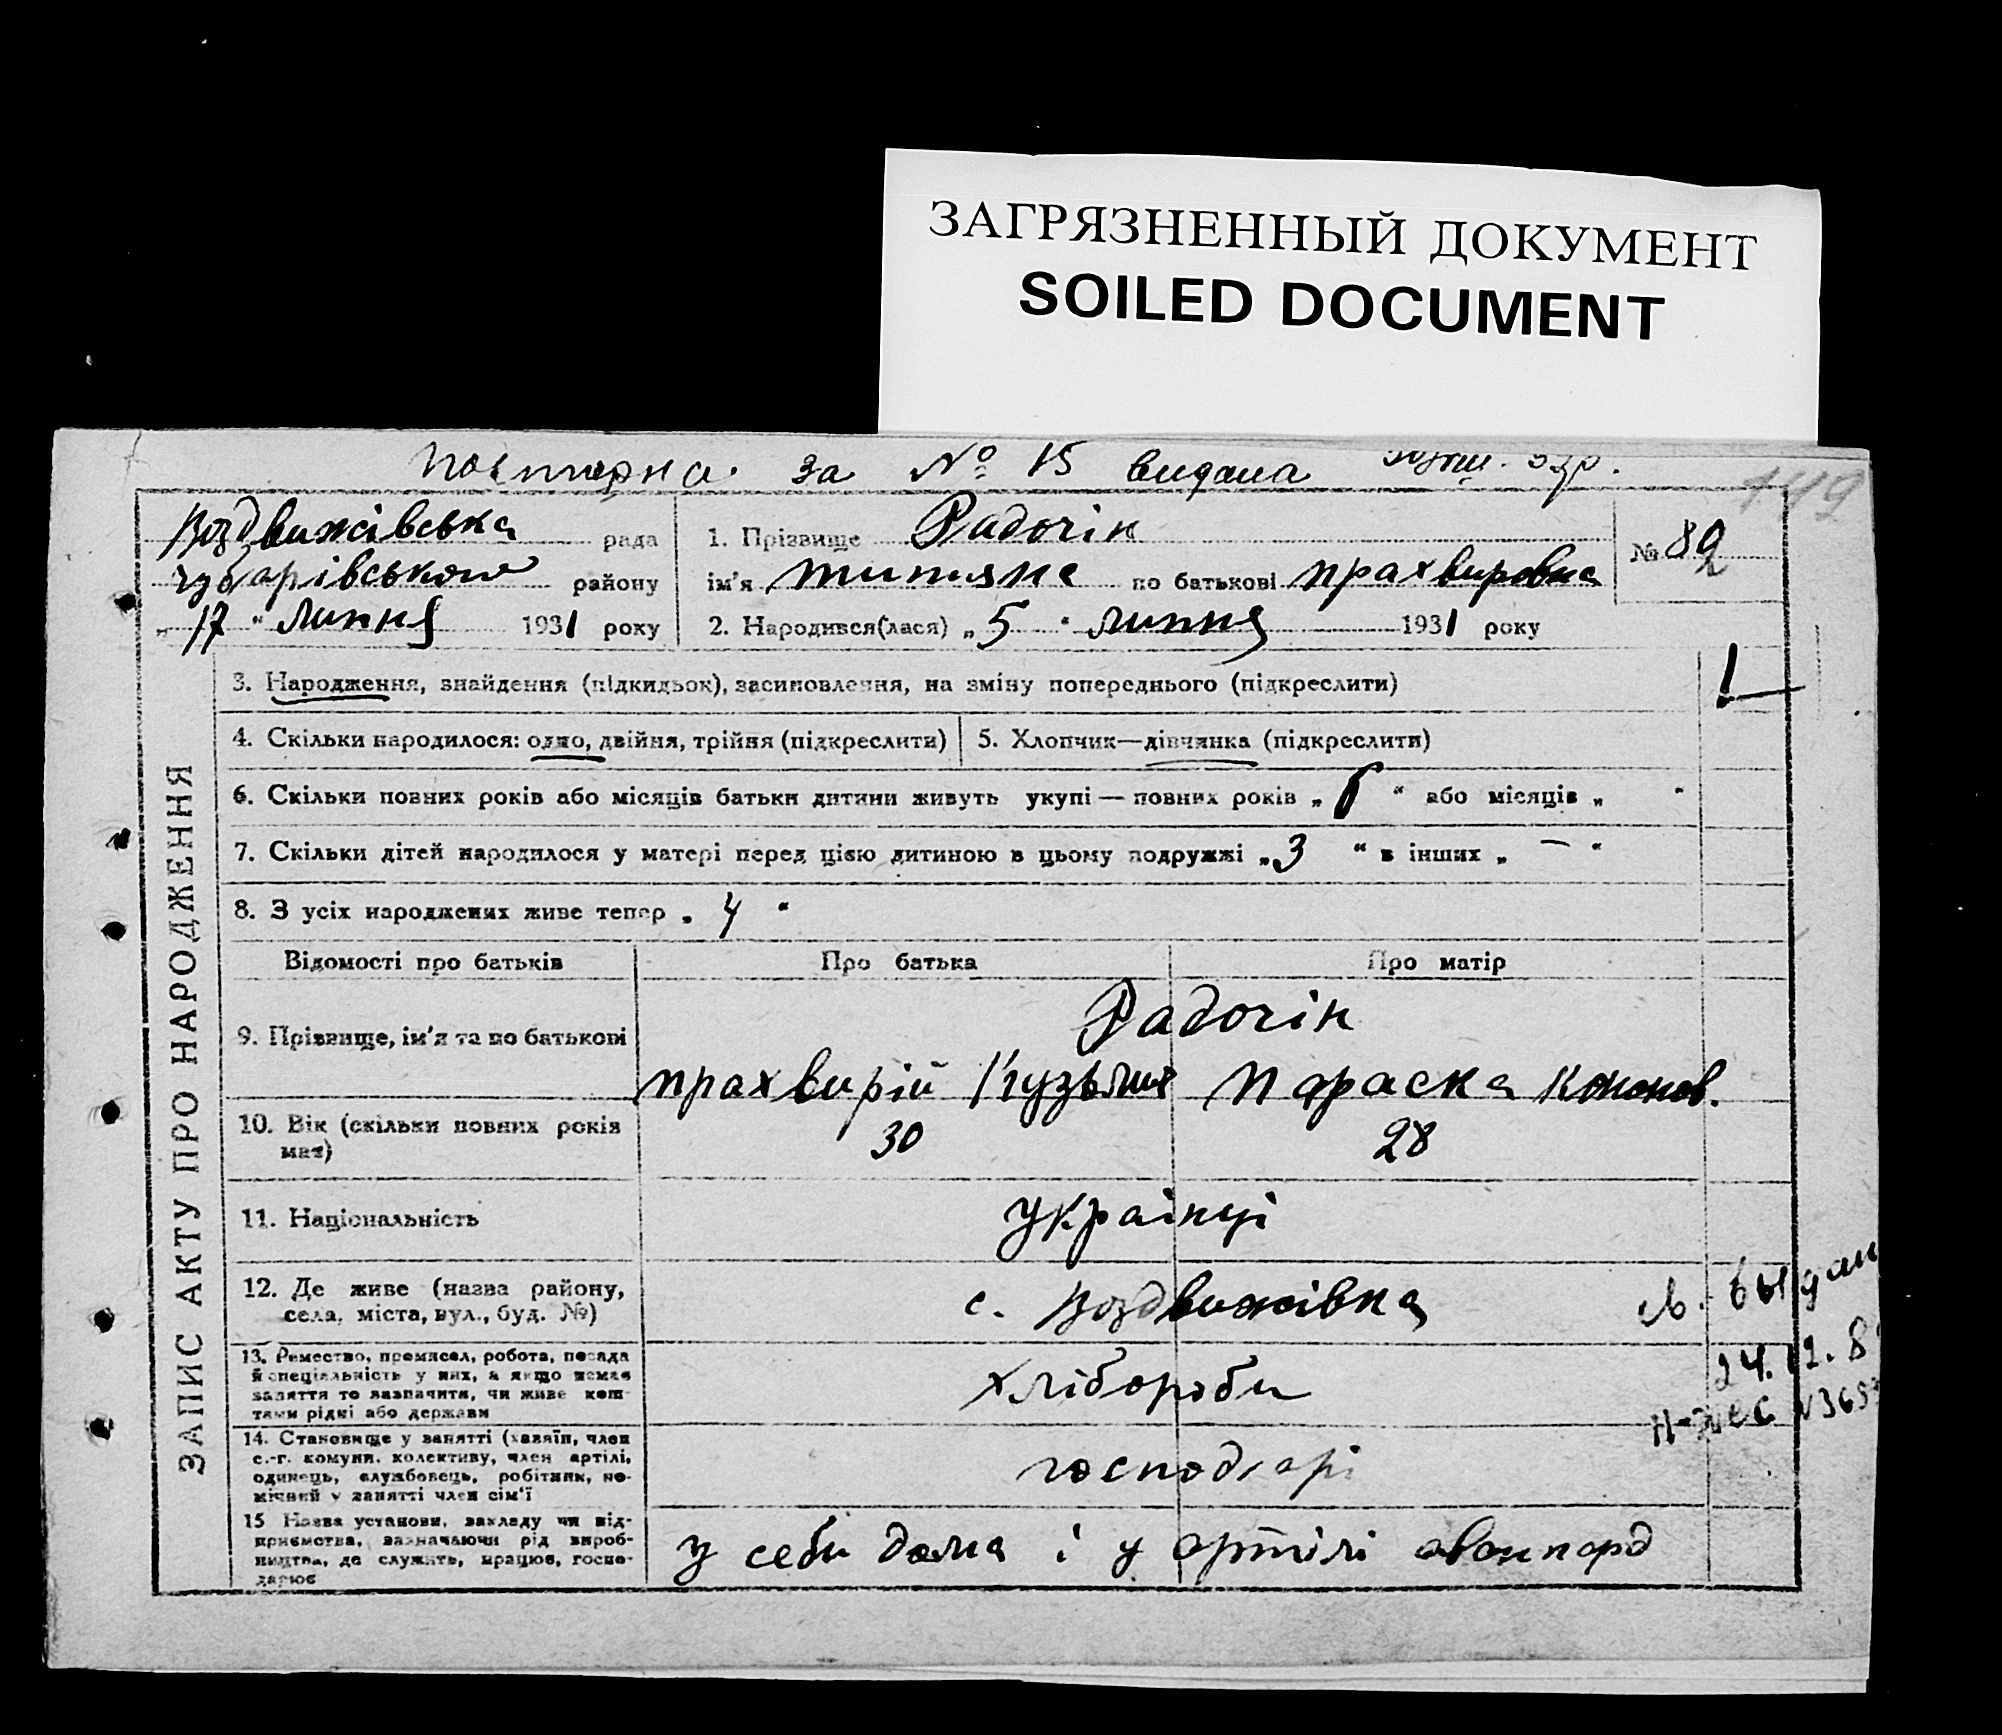 ЗАГРЯЗНЕННЫЙ ДОКУМЕНТ
SOILED DOCUMENT
за № 15 видана
149
Воздвижівська рада
Чубарівського району
„ 17 “ липня 1931 року
1. Прізвище Радочін
ім’я Титяна по батькові Прахвировна
2. Народився(лася) „ 5 “ липня 1931 року
№ 82
ЗАПИС АКТУ ПРО НАРОДЖЕННЯ
3. Народження, знайдення (підкидьок), засиновлення, на зміну попереднього (підкреслити)
4. Скільки народилося: одно, двійня, трійня (підкреслити)
5. Хлопчик—дівчинка (підкреслити)
6. Скільки повних років або місяців батьки дитини живуть укупі — повних років „ “ або місяців „ “
7. Скільки дітей народилося у матері перед цією дитиною в цьому подружжі „ 3 “ в інших „ — “
8. З усіх народжених живе тепер „ 4 “
Відомості про батьків
Про батька
Про матір
9. Прізвище, ім’я та по батькові
Радочін
Прахвирій Кузьмич
Параска Кононов.
10. Вік (скільки повних років має)
30
28
11. Національність
українці
12. Де живе (назва району, села, міста, вул., буд. №)
с. Воздвижівка
св. выдан
24.12.8
13. Ремество, промисел, робота, посада
й спеціяльність у них, а якщо немає
заняття то зазначити, чи живе кош-
тами рідні або держави
хлібороби
14. Становище у занятті (хазяїн, член
с.-г. комуни, колективу, член артілі,
одинець, службовець, робітник, по-
мічний у занятті член сім’ї
господарі
15 Назва установи, закладу чи під-
приємства, зазначаючи рід вироб-
ництва, де служить, працює, госпо-
дарює
у себи дома і у артілі авонпорд